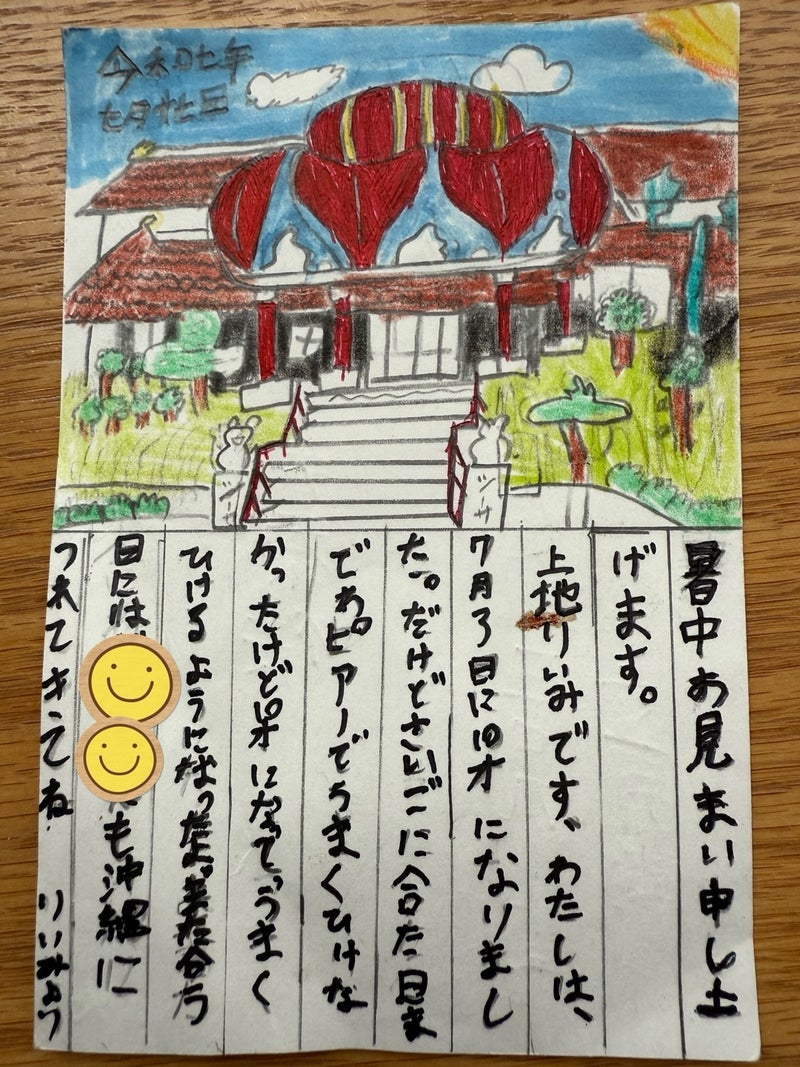 令和七年
七月廿七日
シサ
シサ
暑中お見まい申し上
げます。
上地りいみです、わたしは、
7月3日に10才になりまし
た。だけどさいごに合た日ま
でわ。ピアノでうまくひけな
かったけど10才になってうまく
ひけるようになったよ。また合う
日には も沖縄に
つれてきてね りいみより